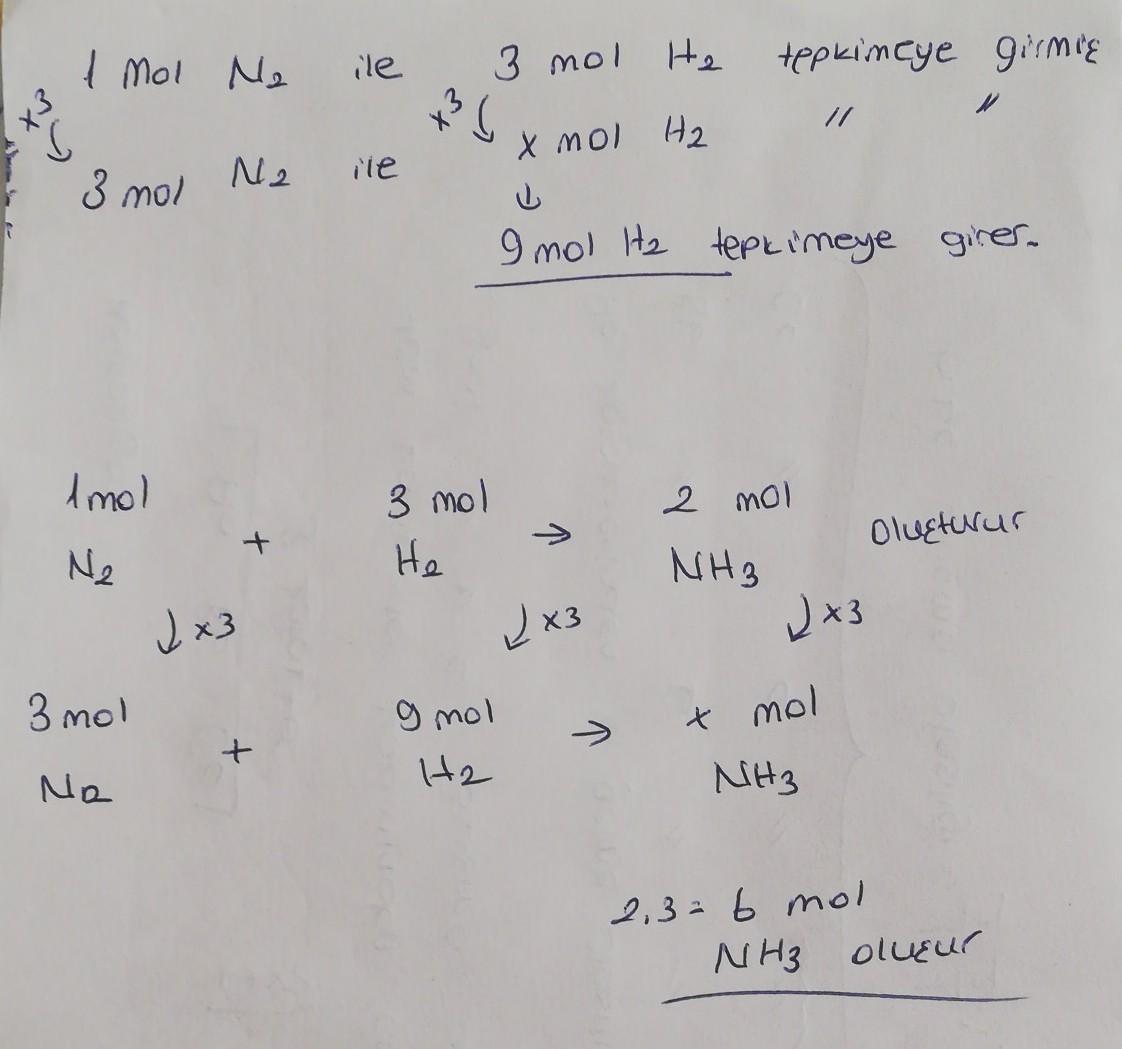 1 Mol N2 ile 3 mol H2 tepkimeye girmiş
x3 x3
3 mol N2 ile x mol H2 " "
↓
9 mol H2 tepkimeye girer.
1 mol 3 mol 2 mol
N2 + H2 → NH3 oluşturur
↓ x3 ↓ x3 ↓ x3
3 mol 9 mol x mol
N2 + H2 → NH3
2.3 = 6 mol
NH3 oluşur